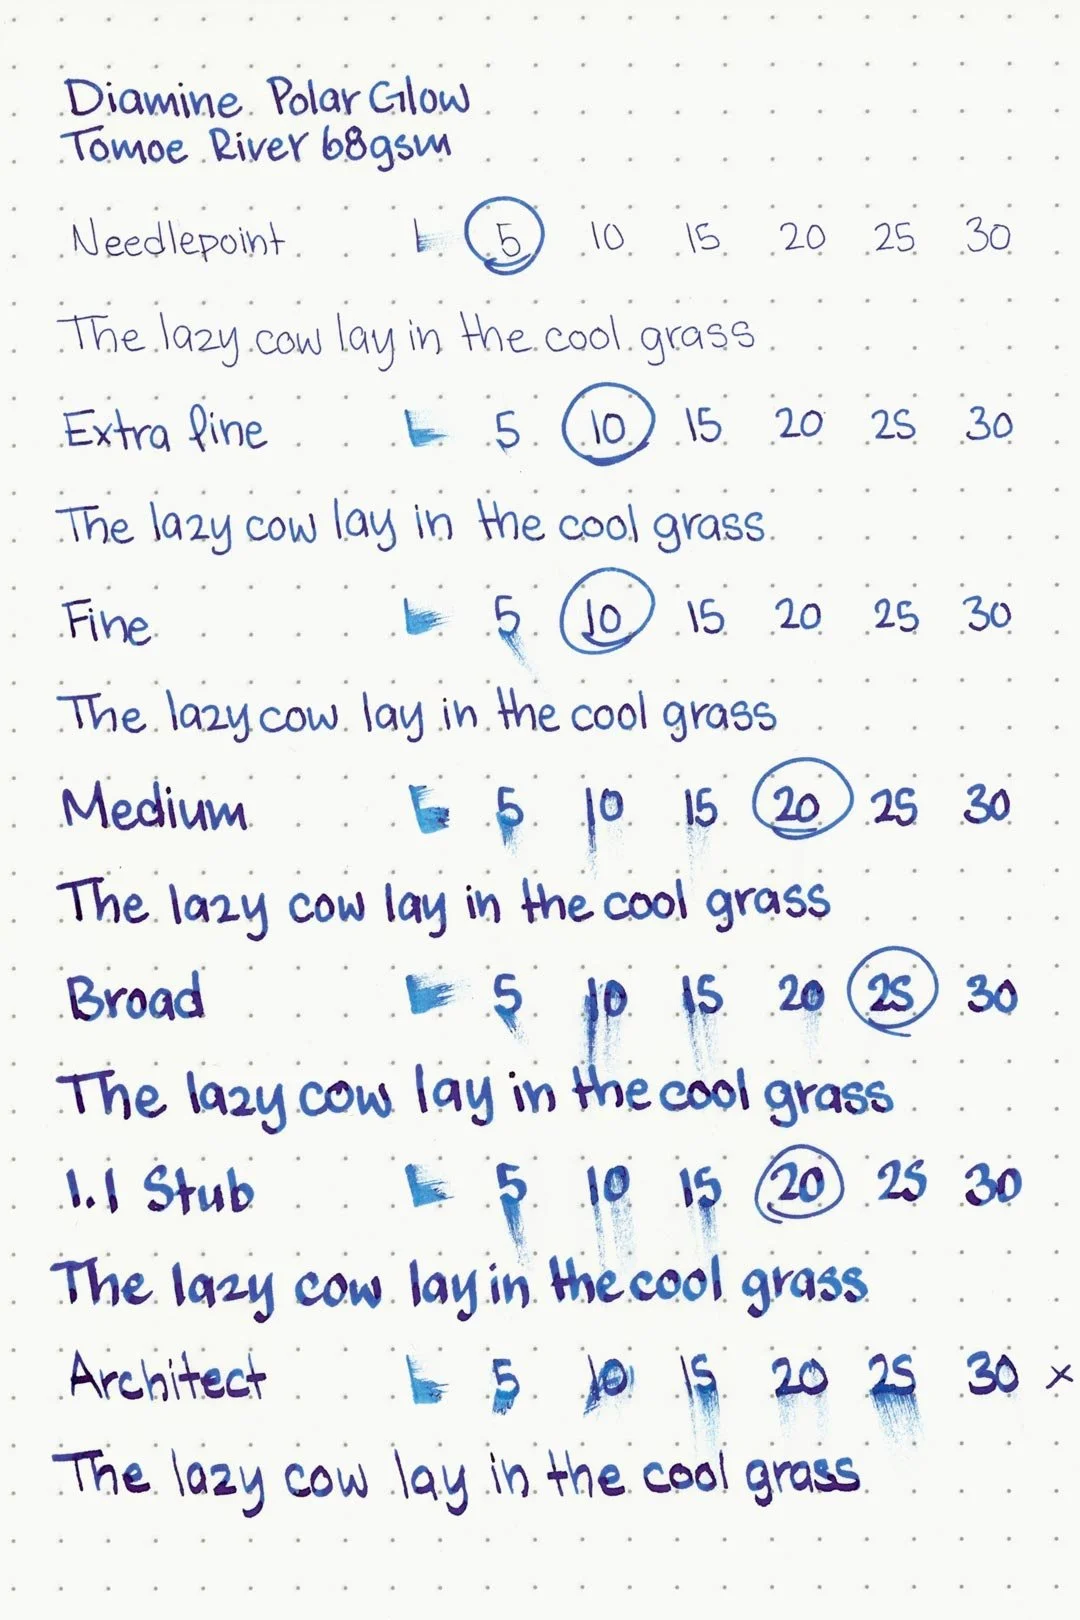 Diamine Polar Glow
Tomoe River 68gsm
Needlepoint 5 10 15 20 25 30
The lazy cow lay in the cool grass
Extra fine 5 10 15 20 25 30
The lazy cow lay in the cool grass
Fine 5 10 15 20 25 30
The lazy cow lay in the cool grass
Medium 5 10 15 20 25 30
The lazy cow lay in the cool grass
Broad 5 10 15 20 25 30
The lazy cow lay in the cool grass
1.1 Stub 5 10 15 20 25 30
The lazy cow lay in the cool grass
Architect 5 10 15 20 25 30 x
The lazy cow lay in the cool grass